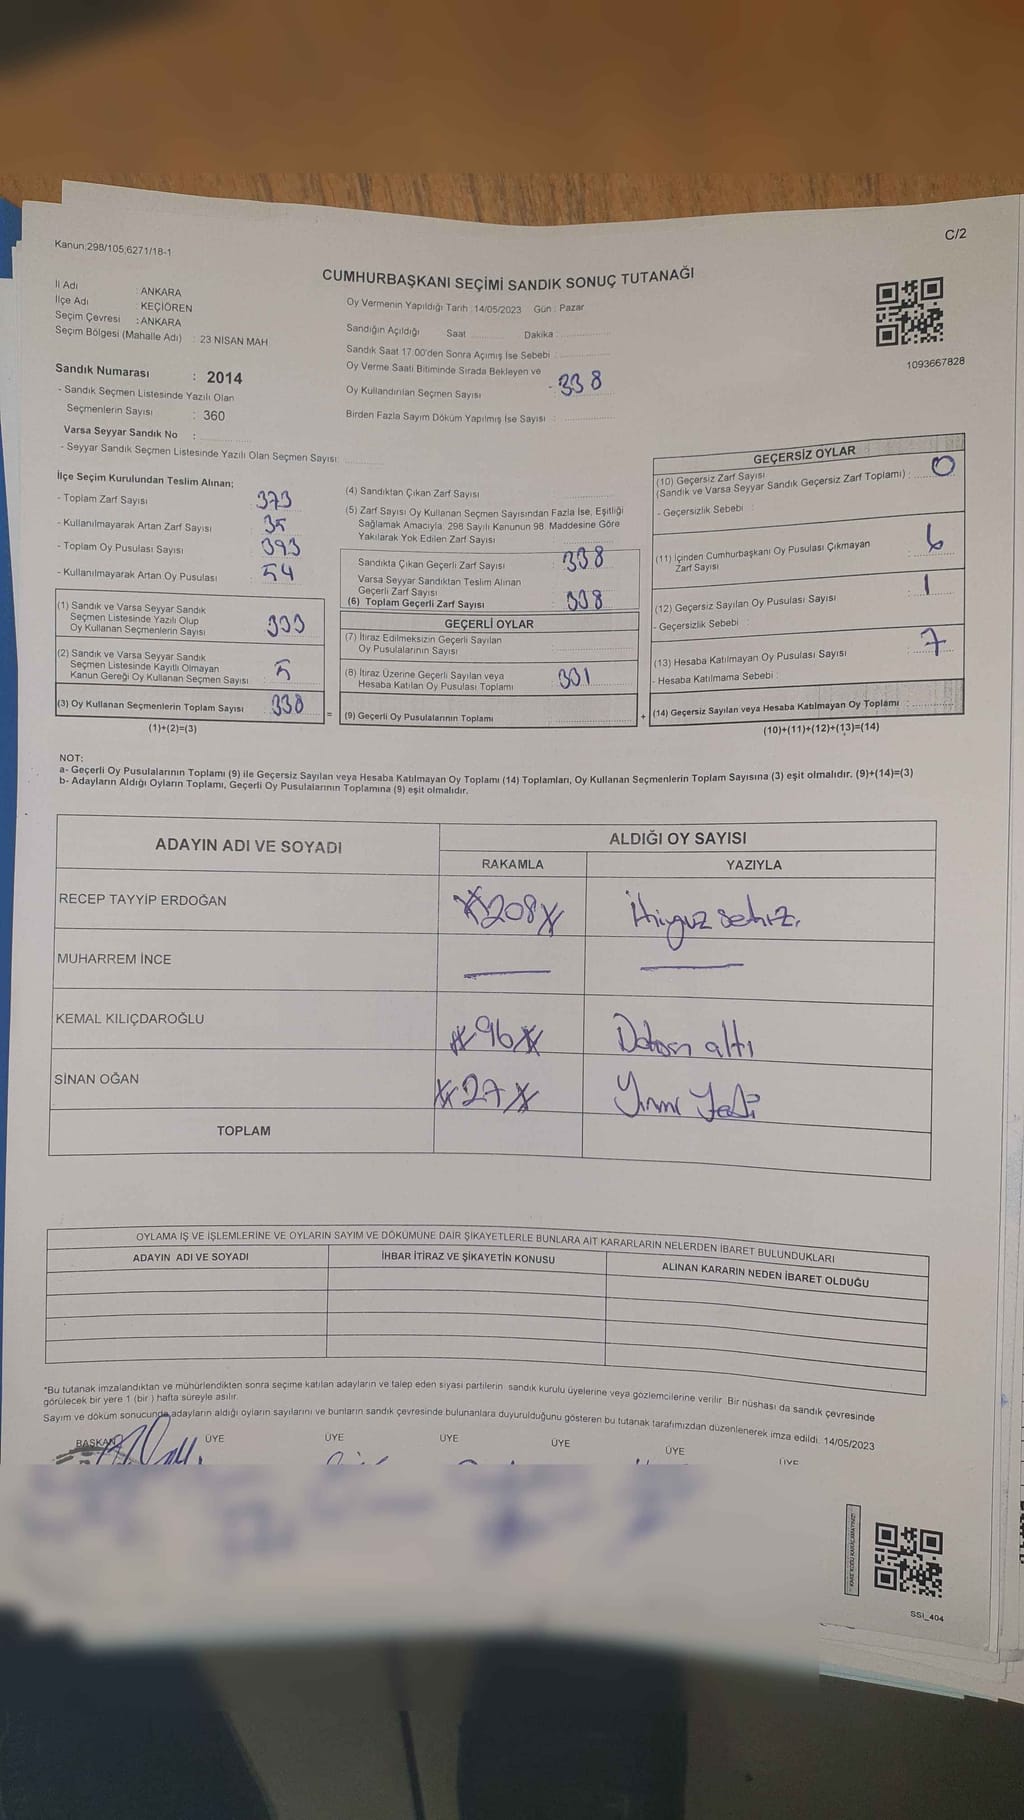 Kanun;298/105;6271/18-1
C/2
CUMHURBAŞKANI SEÇİMİ SANDIK SONUÇ TUTANAĞI
İl Adı : ANKARA
İlçe Adı : KEÇİÖREN
Seçim Çevresi : ANKARA
Seçim Bölgesi (Mahalle Adı) : 23 NİSAN MAH
Sandık Numarası : 2014
- Sandık Seçmen Listesinde Yazılı Olan
Seçmenlerin Sayısı : 360
Varsa Seyyar Sandık No :
- Seyyar Sandık Seçmen Listesinde Yazılı Olan Seçmen Sayısı:
Oy Vermenin Yapıldığı Tarih : 14/05/2023 Gün : Pazar
Sandığın Açıldığı Saat Dakika
Sandık Saat 17.00'den Sonra Açımış İse Sebebi :
Oy Verme Saati Bitiminde Sırada Bekleyen ve
Oy Kullandırılan Seçmen Sayısı - 338
Birden Fazla Sayım Döküm Yapılmış İse Sayısı :
1093667828
İlçe Seçim Kurulundan Teslim Alınan;
- Toplam Zarf Sayısı : 373
- Kullanılmayarak Artan Zarf Sayısı : 35
- Toplam Oy Pusulası Sayısı : 393
- Kullanılmayarak Artan Oy Pusulası : 54
(1) Sandık ve Varsa Seyyar Sandık
Seçmen Listesinde Yazılı Olup
Oy Kullanan Seçmenlerin Sayısı 333
(2) Sandık ve Varsa Seyyar Sandık
Seçmen Listesinde Kayıtlı Olmayan
Kanun Gereği Oy Kullanan Seçmen Sayısı 5
(3) Oy Kullanan Seçmenlerin Toplam Sayısı 338
(1)+(2)=(3)
(4) Sandıktan Çıkan Zarf Sayısı
(5) Zarf Sayısı Oy Kullanan Seçmen Sayısından Fazla İse, Eşitliği
Sağlamak Amacıyla; 298 Sayılı Kanunun 98. Maddesine Göre
Yakılarak Yok Edilen Zarf Sayısı
Sandıkta Çıkan Geçerli Zarf Sayısı : 338
Varsa Seyyar Sandıktan Teslim Alınan
Geçerli Zarf Sayısı
(6) Toplam Geçerli Zarf Sayısı : 338
GEÇERLİ OYLAR
(7) İtiraz Edilmeksizin Geçerli Sayılan
Oy Pusulalarının Sayısı
(8) İtiraz Üzerine Geçerli Sayılan veya
Hesaba Katılan Oy Pusulası Toplamı : 331
= (9) Geçerli Oy Pusulalarının Toplamı
GEÇERSİZ OYLAR
(10) Geçersiz Zarf Sayısı
(Sandık ve Varsa Seyyar Sandık Geçersiz Zarf Toplamı) : 0
- Geçersizlik Sebebi :
(11) İçinden Cumhurbaşkanı Oy Pusulası Çıkmayan
Zarf Sayısı : 6
(12) Geçersiz Sayılan Oy Pusulası Sayısı : 1
- Geçersizlik Sebebi :
(13) Hesaba Katılmayan Oy Pusulası Sayısı : 7
- Hesaba Katılmama Sebebi :
+ (14) Geçersiz Sayılan veya Hesaba Katılmayan Oy Toplamı :
(10)+(11)+(12)+(13)=(14)
NOT:
a- Geçerli Oy Pusulalarının Toplamı (9) ile Geçersiz Sayılan veya Hesaba Katılmayan Oy Toplamı (14) Toplamları, Oy Kullanan Seçmenlerin Toplam Sayısına (3) eşit olmalıdır. (9)+(14)=(3)
b- Adayların Aldığı Oyların Toplamı, Geçerli Oy Pusulalarının Toplamına (9) eşit olmalıdır.
ADAYIN ADI VE SOYADI ALDIĞI OY SAYISI
RAKAMLA YAZIYLA
RECEP TAYYİP ERDOĞAN 208 İkiyüz sekiz.
MUHARREM İNCE
KEMAL KILIÇDAROĞLU 96 Doksan altı
SİNAN OĞAN 27 Yirmi Yedi
TOPLAM
OYLAMA İŞ VE İŞLEMLERİNE VE OYLARIN SAYIM VE DÖKÜMÜNE DAİR ŞİKAYETLERLE BUNLARA AİT KARARLARIN NELERDEN İBARET BULUNDUKLARI
ADAYIN ADI VE SOYADI İHBAR İTİRAZ VE ŞİKAYETİN KONUSU ALINAN KARARIN NEDEN İBARET OLDUĞU
*Bu tutanak imzalandıktan ve mühürlendikten sonra seçime katılan adayların ve talep eden siyasi partilerin sandık kurulu üyelerine veya gözlemcilerine verilir. Bir nüshası da sandık çevresinde
görülecek bir yere 1 (bir ) hafta süreyle asılır.
Sayım ve döküm sonucunda adayların aldığı oyların sayılarını ve bunların sandık çevresinde bulunanlara duyurulduğunu gösteren bu tutanak tarafımızdan düzenlenerek imza edildi. 14/05/2023
BAŞKAN ÜYE ÜYE ÜYE ÜYE ÜYE ÜYE
SSİ_404